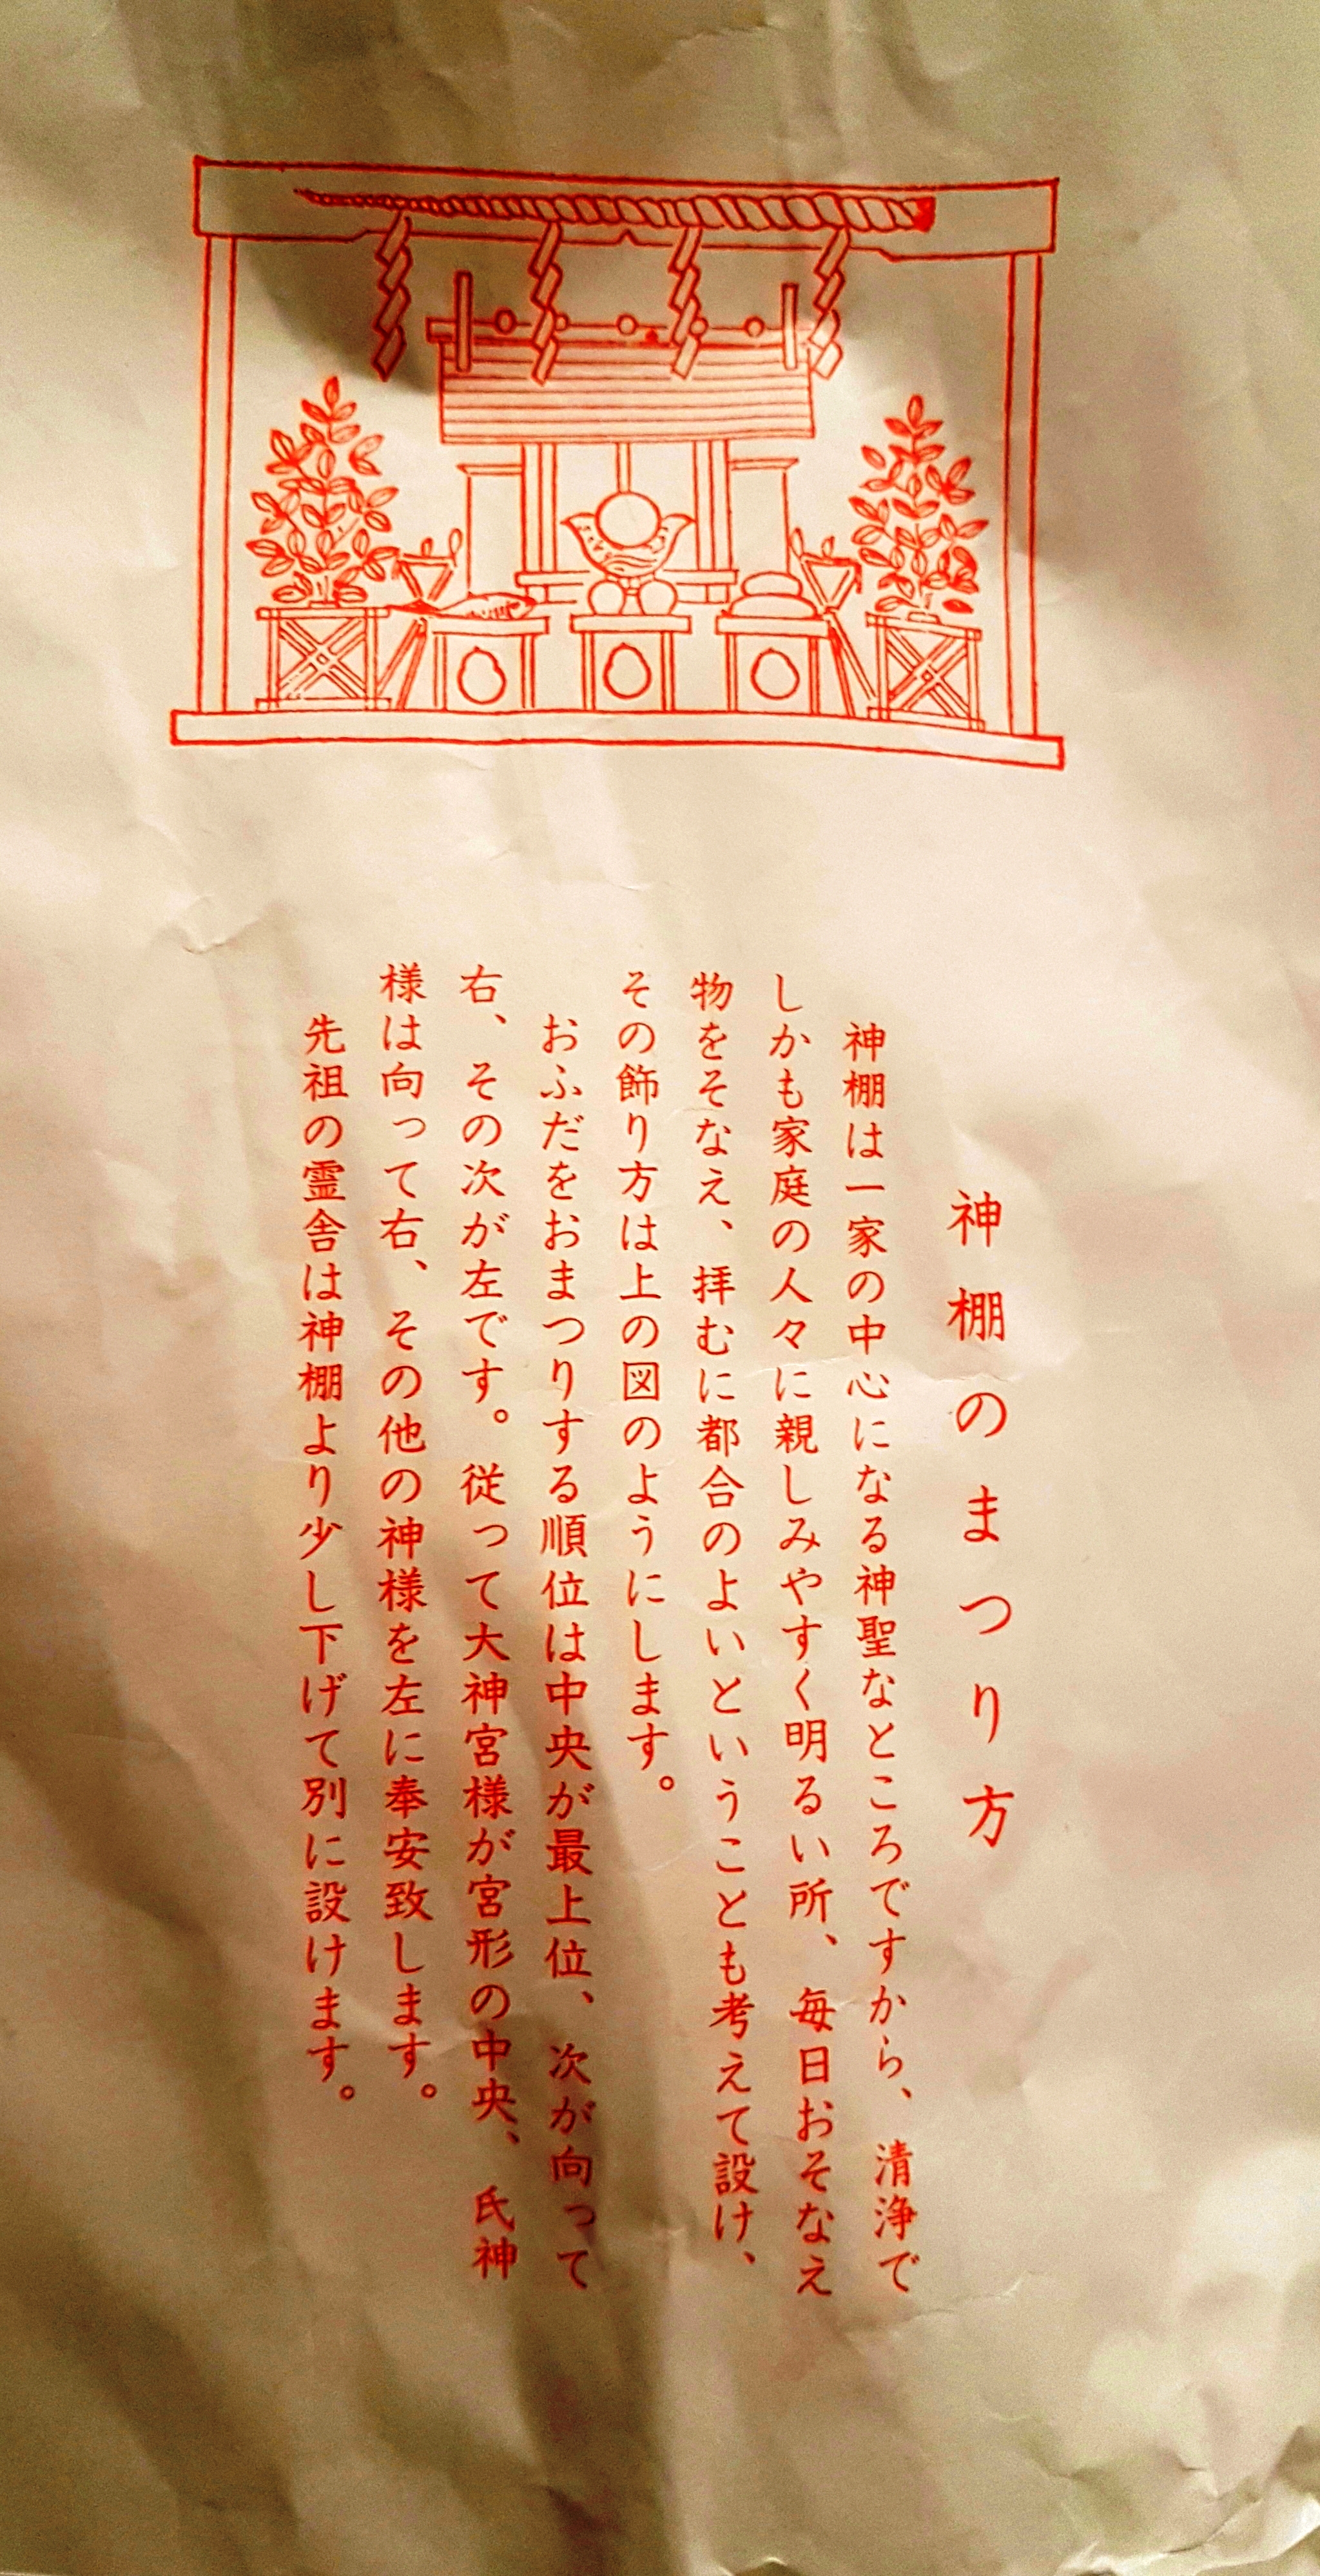 神棚のまつり方
神棚は一家の中心になる神聖なところですから、清浄で
しかも家庭の人々に親しみやすく明るい所、毎日おそなえ
物をそなえ、拝むに都合のよいということも考えて設け、
その飾り方は上の図のようにします。
おふだをおまつりする順位は中央が最上位、次が向って
右、その次が左です。従って大神宮様が宮形の中央、氏神
様は向って右、その他の神様を左に奉安致します。
先祖の霊舎は神棚より少し下げて別に設けます。